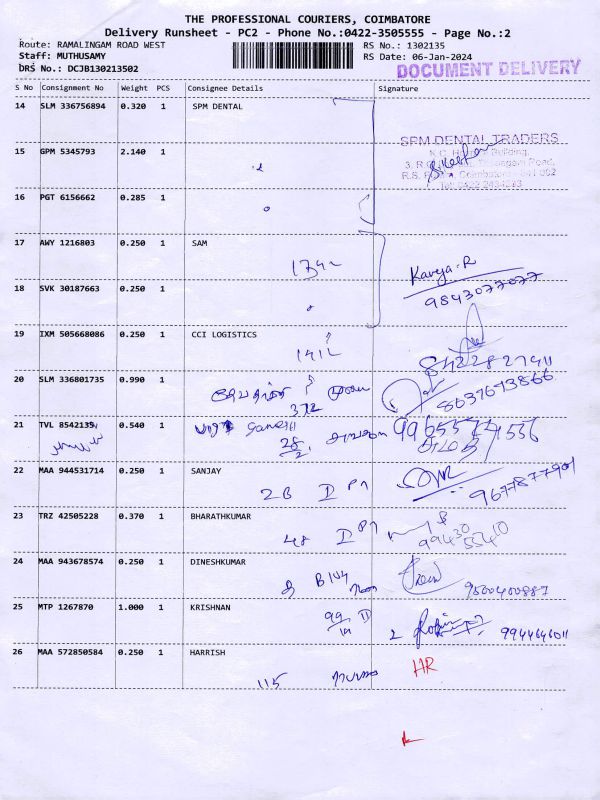 THE PROFESSIONAL COURIERS, COIMBATORE
Delivery Runsheet - PC2 - Phone No.:0422-3505555 - Page No.:2
Route: RAMALINGAM ROAD WEST
RS No.: 1302135
Staff: MUTHUSAMY
RS Date: 06-Jan-2024
DRS No.: DCJB130213502
DOCUMENT DELIVERY
S No Consignment No Weight PCS Consignee Details Signature
14 SLM 336756894 0.320 1 SPM DENTAL
SPM DENTAL TRADERS
15 GPM 5345793 2.140 1
16 PGT 6156662 0.285 1
17 AWY 1216803 0.250 1 SAM
Kavya.R
9843077077
18 SVK 30187663 0.250 1
19 IXM 505668086 0.250 1 CCI LOGISTICS
20 SLM 336801735 0.990 1
372
8637673866
21 TVL 8542135 0.540 1
28/2
22 MAA 944531714 0.250 1 SANJAY
2B
9677877901
23 TRZ 42505228 0.370 1 BHARATHKUMAR
48
99430
55410
24 MAA 943678574 0.250 1 DINESHKUMAR
9500400887
25 MTP 1267870 1.000 1 KRISHNAN
9944646011
26 MAA 572850584 0.250 1 HARRISH
115
HR